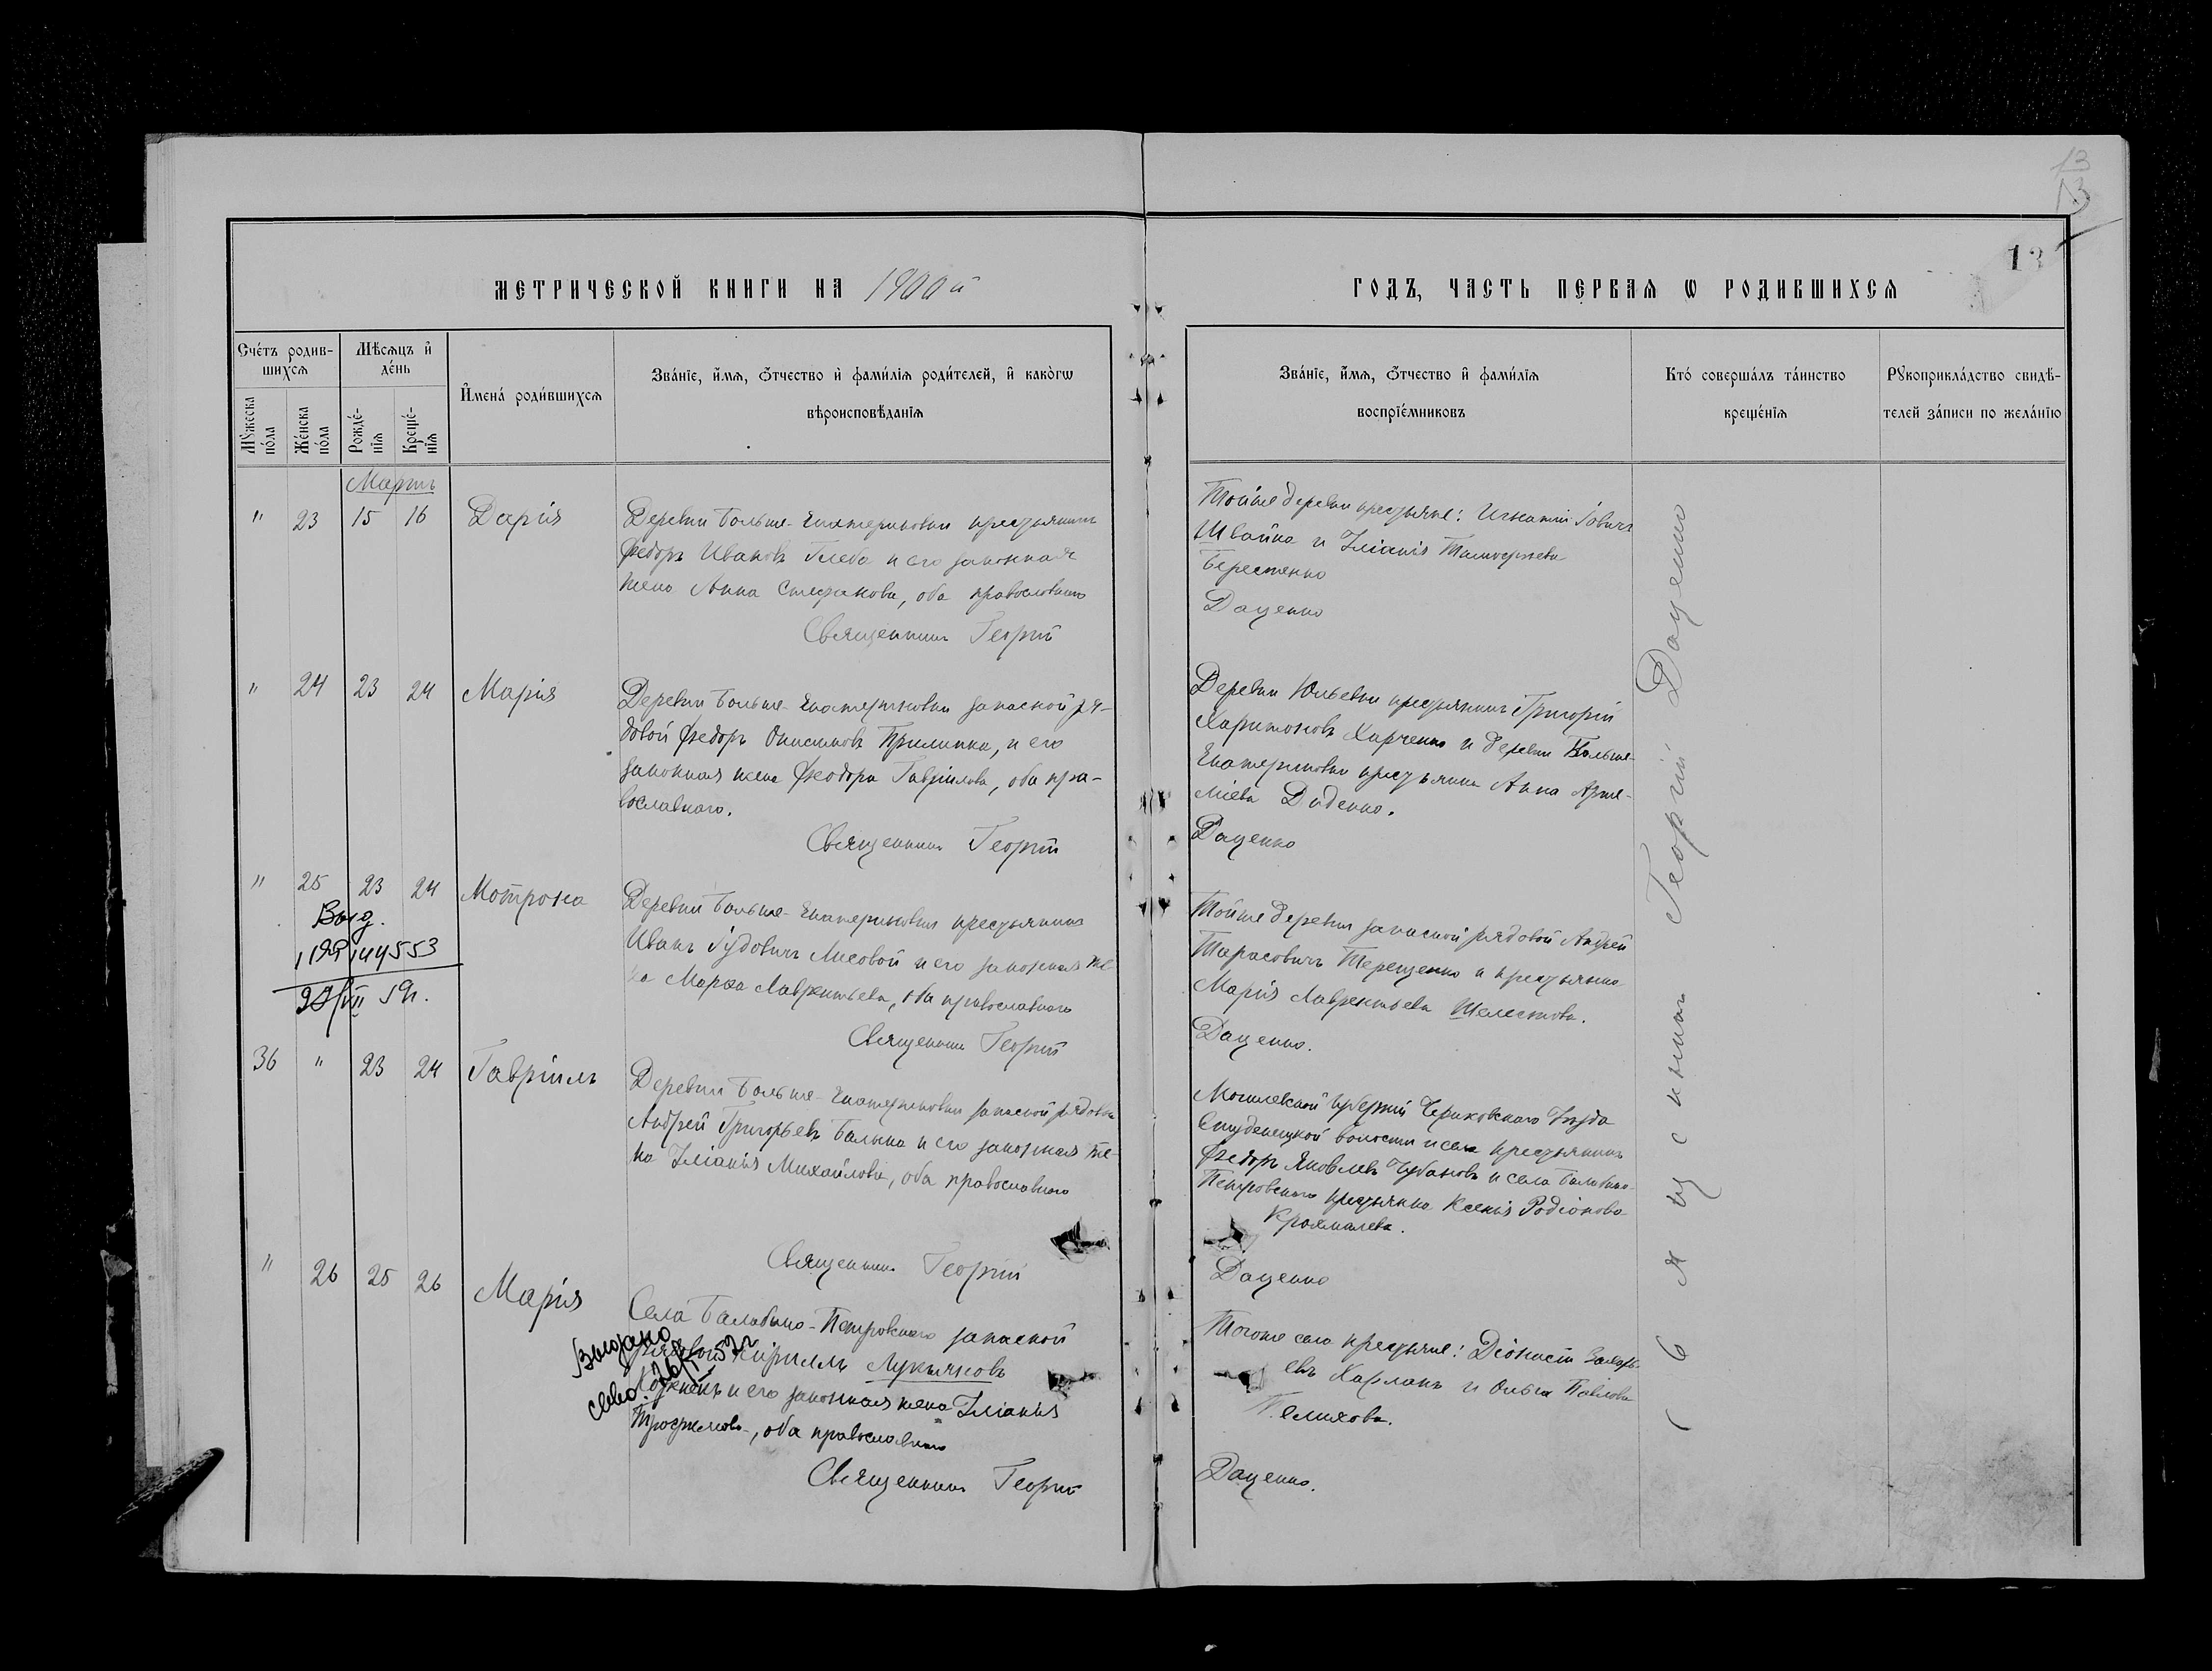 13
13
13
МЕТРИЧЕСКОЙ КНИГИ НА 1900й
ГОДЪ, ЧАСТЬ ПЕРВАѦ Ѡ РОДИВШИХСѦ
Сче́тъ родив-
шихсѧ
Мѣ́сѧцъ и҆
де́нь
Мꙋ́жеска
по́ла
Же́нска
по́ла
Рожде́-
нїѧ
Креще́-
нїѧ
И҆мена̀ роди́вшихсѧ
Зва́нїе, и҆́мѧ, ѻ҆́тчество и҆ фами́лїѧ роди́телей, и҆ како́гѡ
вѣроисповѣ́данїѧ
Зва́нїе, и҆́мѧ, ѻ҆́тчество и҆ фами́лїѧ
воспрїе́мниковъ
Кто̀ соверша́лъ та́инство
креще́нїѧ
Рꙋкоприкла́дство свидѣ́-
телей за́писи по жела́нїю
Мартъ
" 23 15 16 Дарія
Деревни Больше-Екатериновки крестьянинъ
Федоръ Ивановъ Глеба и его законная
жена Анна Стефанова, оба православнаго
Священникъ Георгій
Тойже деревни крестьяне: Игнатій
Швайка и Іуліанія Тимофеева
Берестенко
Даценко
" 24 23 24 Марія
Деревни Больше-Екатериновки запасной ря-
довой Федоръ Онисимовъ Прилипка, и его
законная жена Феодора Гавріилова, оба пра-
вославнаго.
Священникъ Георгій
Деревни Юльевки крестьянинъ Григорій
Харитоновъ Харченко и деревни Больше-
Екатериновки крестьянка Анна Арте-
міева Диденко.
Даценко
" 25 23 24 Мотрона
Выд.
144553
59г.
Деревни Больше-Екатериновки крестьянинъ
Иванъ Іудовичъ Лисовой и его законная же-
на Марѳа Лаврентьева, оба православнаго
Священникъ Георгій
Тойже деревни запасной рядовой Андрей
Тарасовичъ Терещенко и крестьянка
Марія Лаврентьева Шелестова.
Даценко.
36 " 23 24 Гавріилъ
Деревни Больше-Екатериновки запасной рядовой
Андрей Григорьевъ Балыка и его законная же-
на Іуліанія Михайлова, оба православнаго
Священникъ Георгій
Могилевской губерніи Чериковскаго Уѣзда
Студенецкой волости и села крестьянинъ
Федоръ Яковлевъ Чубановъ и села Балабино-
Петровскаго крестьянка Ксенія Родіонова
Крохмалева.
Даценко
" 26 25 26 Марія
Выдано
свид.
Села Балабино-Петровскаго запасной
рядовой Кириллъ Лукьяновъ
и его законная жена Іуліанія
Трофимова, оба православнаго
Священникъ Георгій
Тогоже села крестьяне: Діонисій Захарь-
евъ Харланъ и Ольга Павлова
Даценко.
Священникъ Георгій Даценко